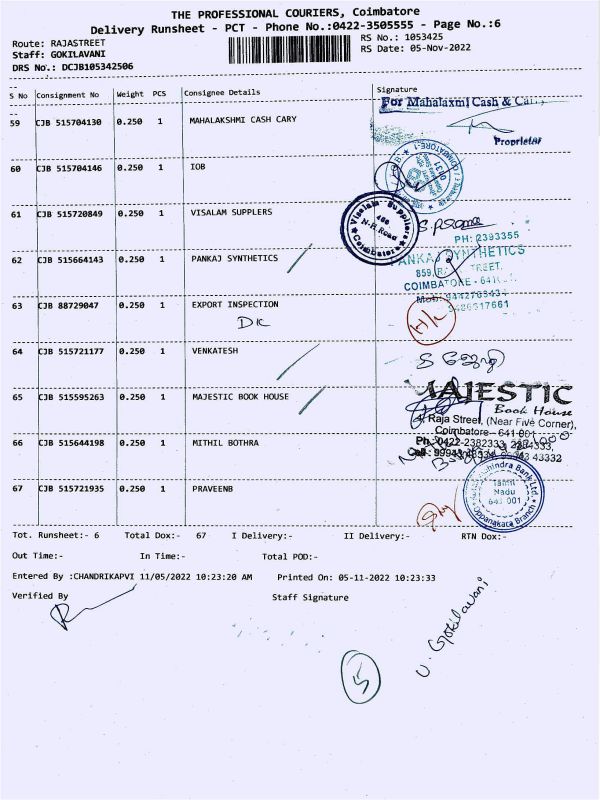 THE PROFESSIONAL COURIERS, Coimbatore
Delivery Runsheet - PCT - Phone No.:0422-3505555 - Page No.:6
Route: RAJASTREET RS No.: 1053425
Staff: GOKILAVANI RS Date: 05-Nov-2022
DRS No.: DCJB105342506
S No Consignment No Weight PCS Consignee Details Signature
For Mahalaxmi Cash & Carry
59 CJB 515704130 0.250 1 MAHALAKSHMI CASH CARY
Proprietor
60 CJB 515704146 0.250 1 IOB
61 CJB 515720849 0.250 1 VISALAM SUPPLERS
Visalam Suppliers
N-H Road
Coimbatore
PH: 2393355
62 CJB 515664143 0.250 1 PANKAJ SYNTHETICS
PANKAJ SYNTHETICS
COIMBATORE - 641
63 CJB 88729047 0.250 1 EXPORT INSPECTION
DK
64 CJB 515721177 0.250 1 VENKATESH
65 CJB 515595263 0.250 1 MAJESTIC BOOK HOUSE
MAJESTIC
Book House
Raja Street, (Near Five Corner),
Coimbatore - 641 001
66 CJB 515644198 0.250 1 MITHIL BOTHRA
Ph: 0422-2382333,
67 CJB 515721935 0.250 1 PRAVEENB
Mahindra Bank Ltd.
Tamil
Nadu
641 001
Oppanakara Branch
Tot. Runsheet:- 6 Total Dox:- 67 I Delivery:- II Delivery:- RTN Dox:-
Out Time:- In Time:- Total POD:-
Entered By :CHANDRIKAPVI 11/05/2022 10:23:20 AM Printed On: 05-11-2022 10:23:33
Verified By Staff Signature
U. Gokilavani